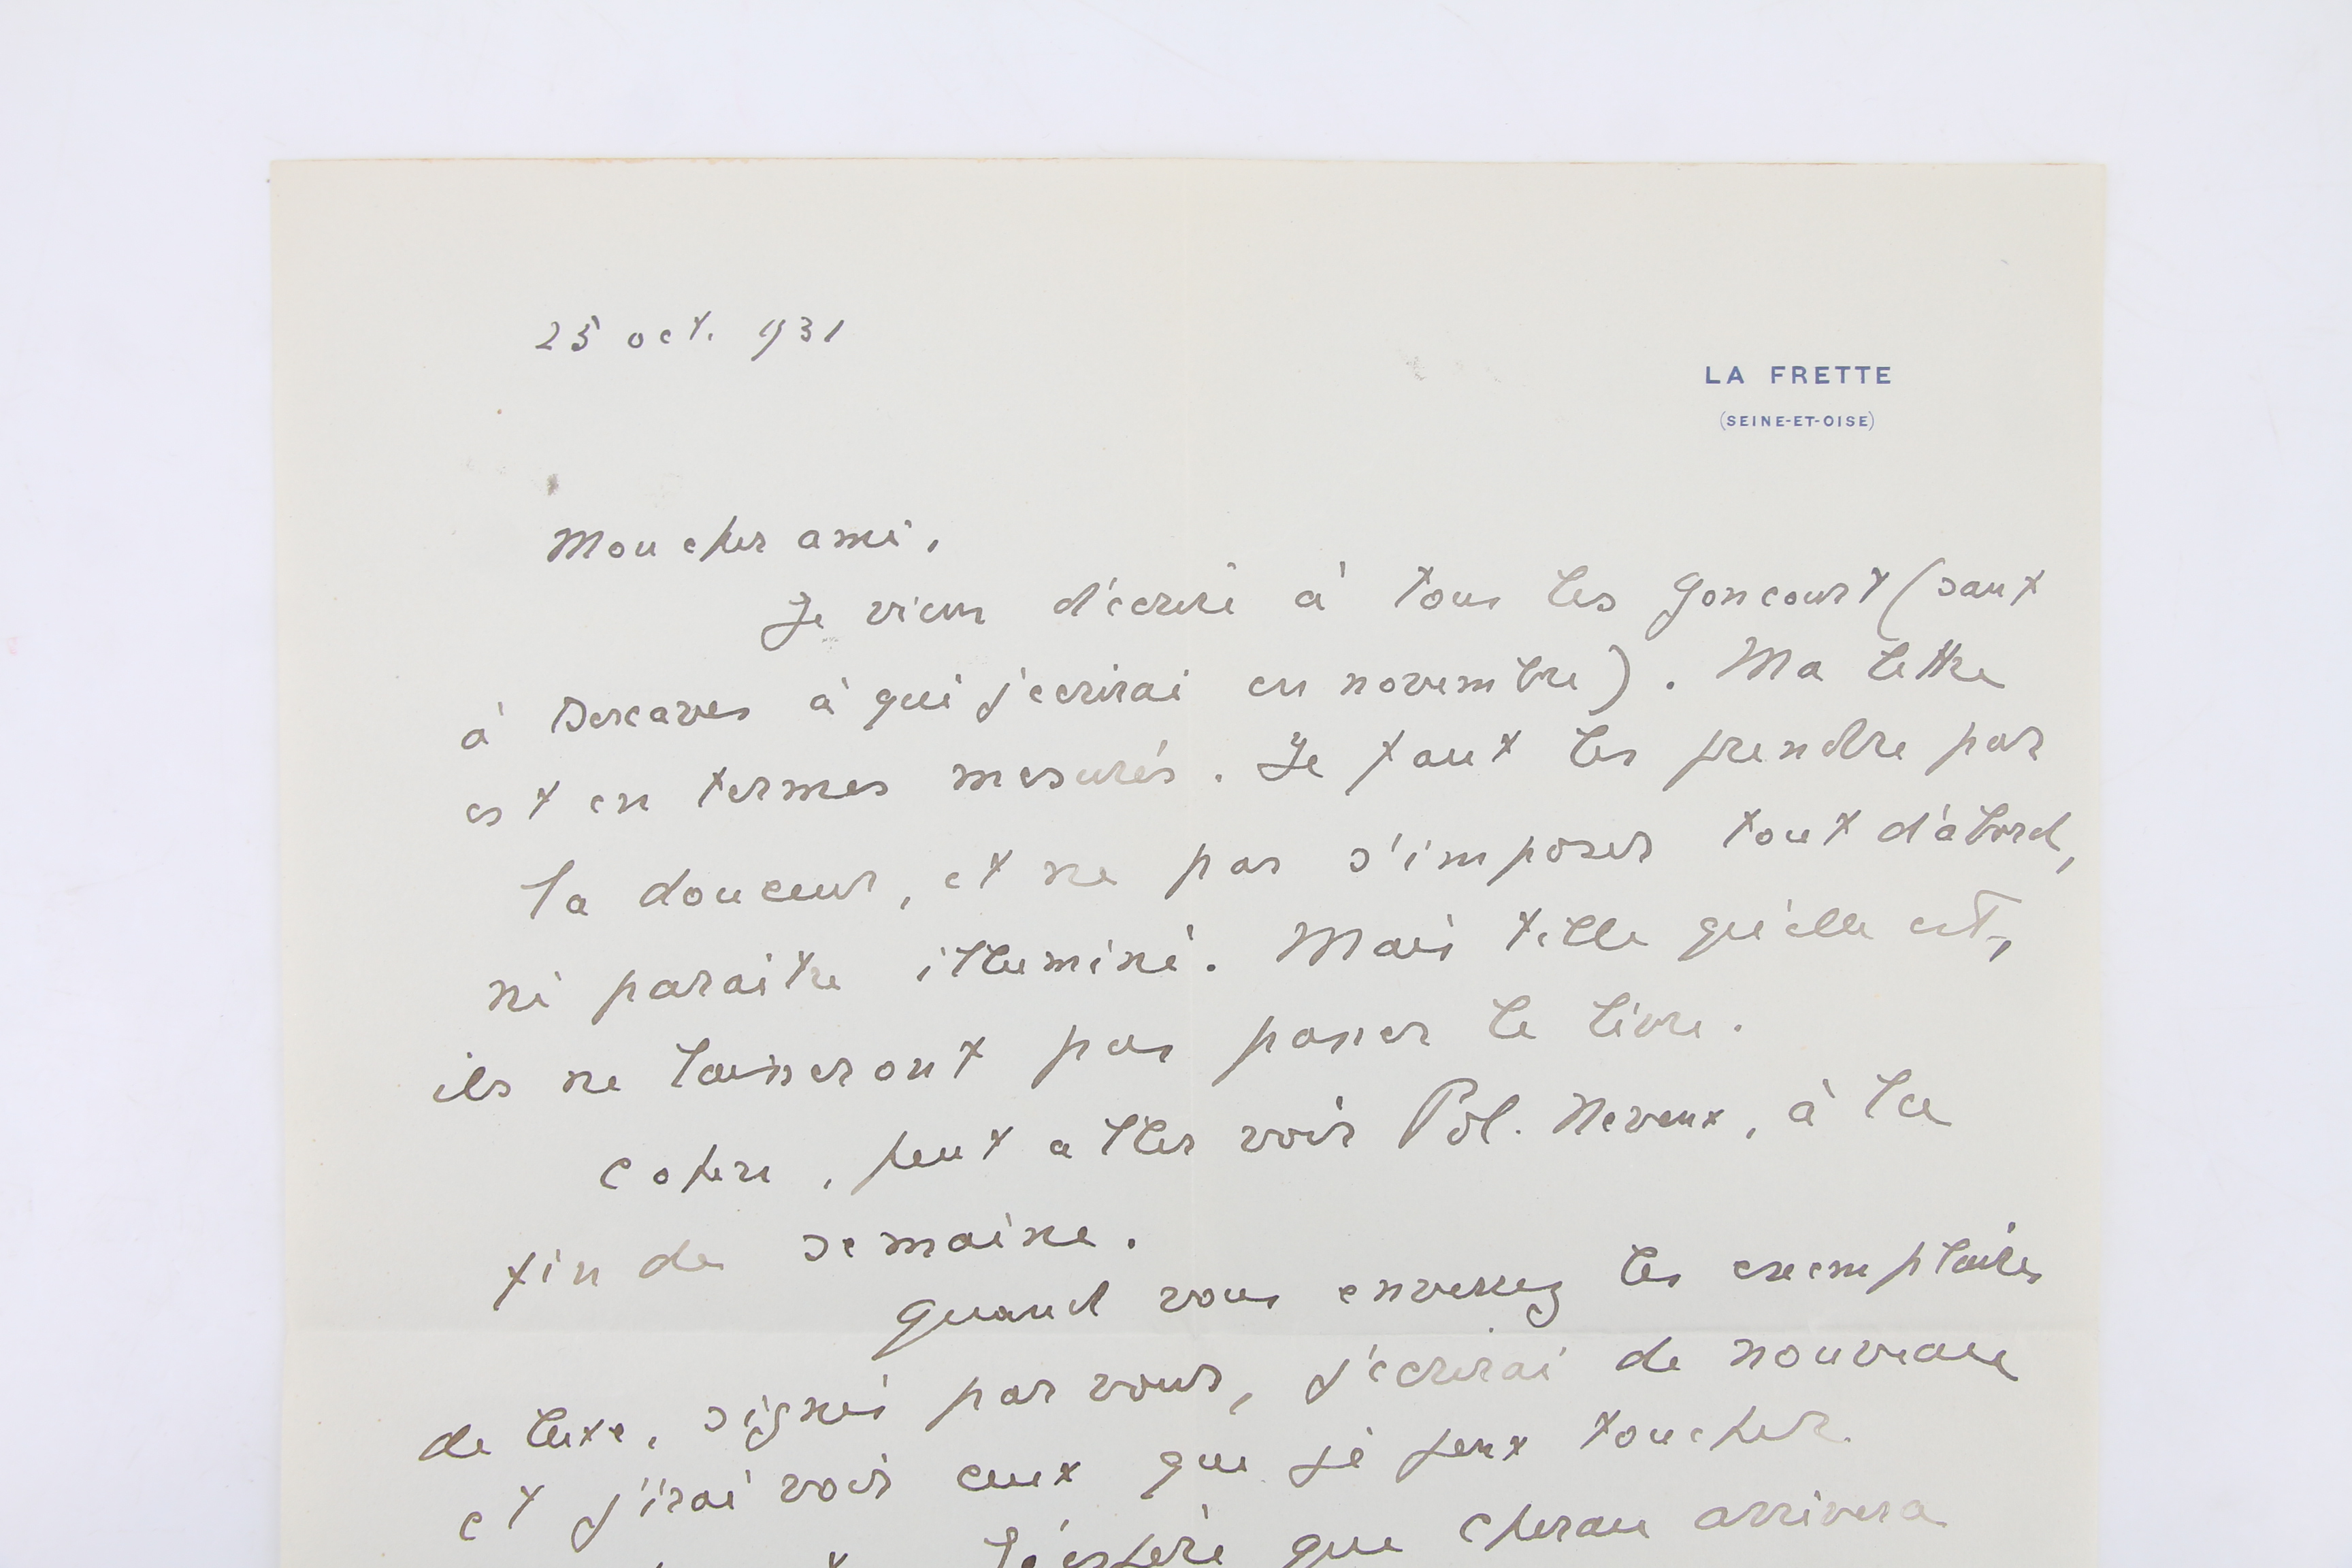 25 oct. 931
LA FRETTE
(SEINE-ET-OISE)
Mon cher ami,
Je viens d'écrire à tous les Goncourt (sauf
à Descaves à qui j'écrirai en novembre). Ma lettre
est en termes mesurés. Il faut les prendre par
la douceur, et ne pas s'imposer tout d'abord,
ni paraitre illuminé. Mais telle qu'elle est,
ils ne laisseront pas passer le livre.
peut aller voir Pol. Neveux, à la
fin de semaine.
Quand vous enverrez les exemplaires
de luxe, signés par vous, j'écrirai de nouveau
et j'irai voir ceux que je peux toucher.
J'espère que Cherau arrivera